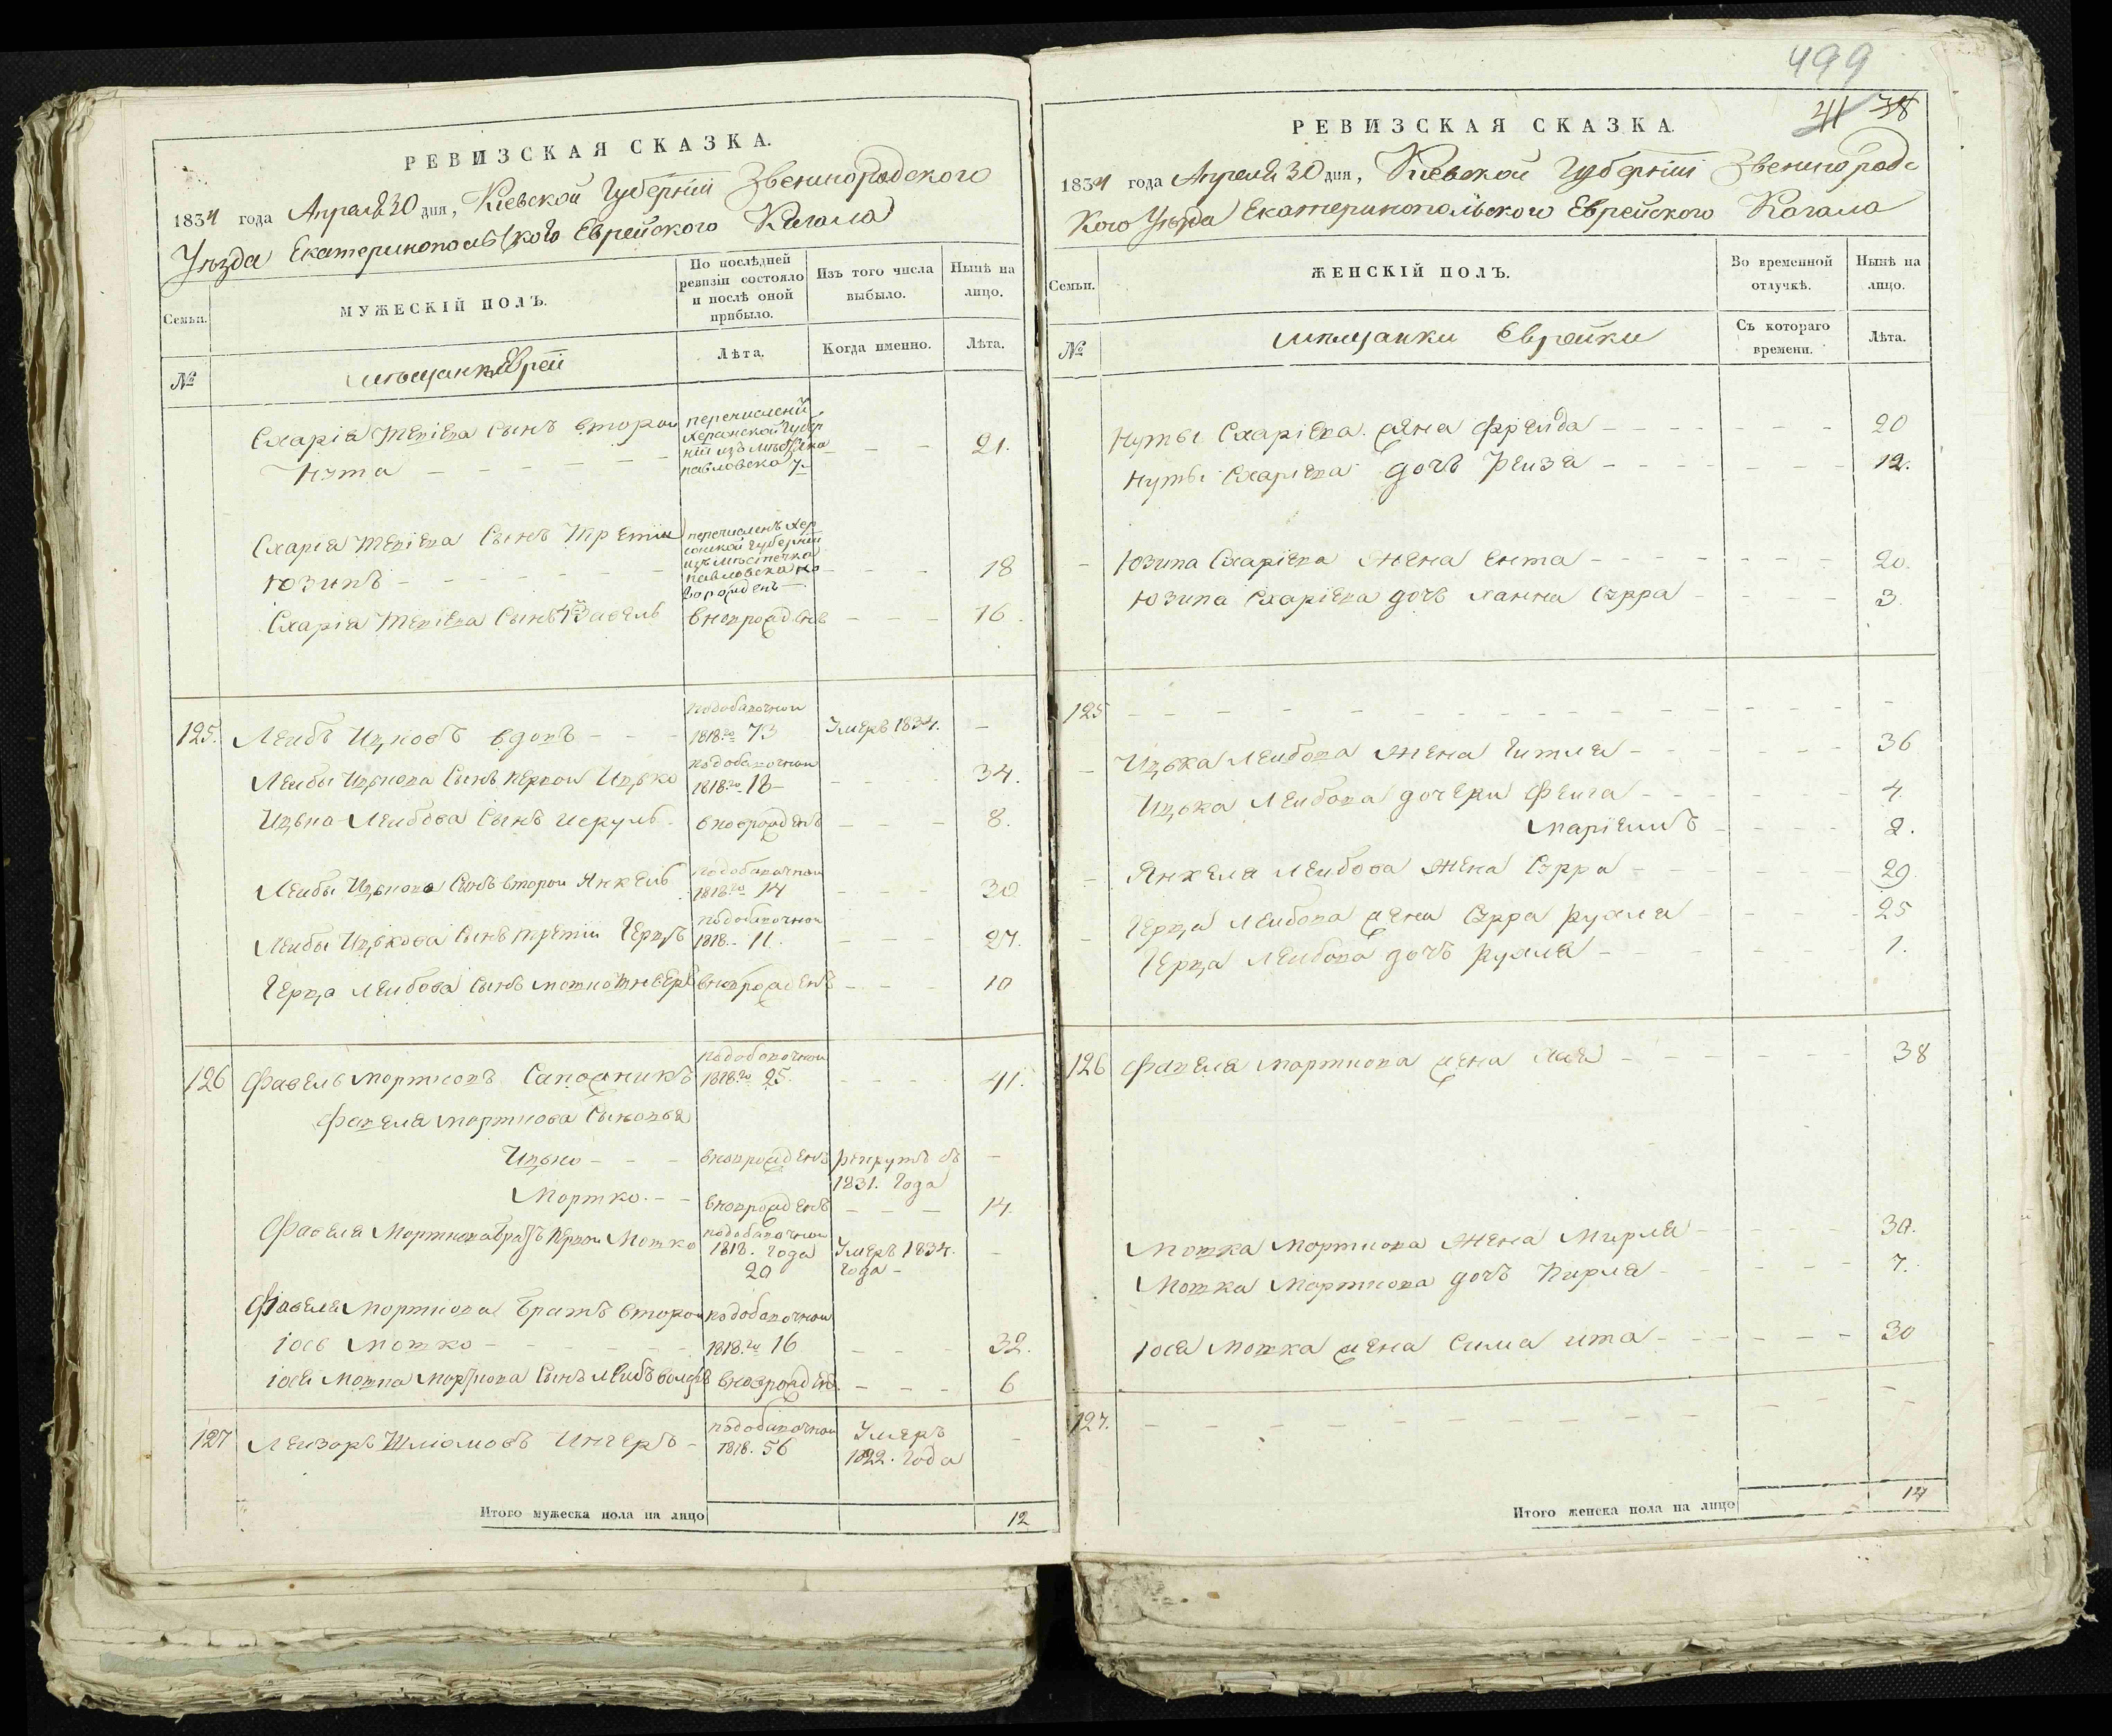 РЕВИЗСКАЯ СКАЗКА.
1834 года Апреля 30 дня, Киевской Губерніи Звенигородского
Уѣзда Екатеринопольского Еврейского Кагала
Семьи.
МУЖЕСКІЙ ПОЛЪ.
По послѣдней ревизіи состояло и послѣ оной прибыло.
Изъ того числа выбыло.
Нынѣ на лицо.
№
Лѣта.
Когда именно.
Лѣта.
Сынъ второй перечислены
Нута - - - 21.
павловска
Сынъ третій перечисленъ Хер
сонской Губерніи
изъ мѣстечка
Юзипъ - - - павловска но 18
ворожденъ
Сынъ вноврожденъ - - - 16.
125. Лейбъ Ицковъ вдовъ - - - подобавочной 1818го 73 Умеръ 1834. -
Лейбы Ицькова Сынъ первой Ицько подобавочной 1818го 18 - - - 34.
Ицька Лейбова Сынъ Искуль вноврожденъ - - - 8.
Лейбы Ицькова Сынъ второй Янкель подобавочной 1818го 14 - - - 30
Лейбы Ицькова Сынъ третій Герцъ подобавочной 1818 - 11. - - - 27.
Герца Лейбова Сынъ вноврожденъ - - - 10
126 Фавель Мортковъ Сапожникъ подобавочной 1818го 25. - - - 41.
ФавеляМорткова Сыновья
Ицько - - - вноврожденъ рекрутъ съ -
1831. года
Мортко. - - вноврожденъ - - - 14.
Фавеля Морткова братъ первой Мошко подобавочной
1818. года Умеръ 1834. -
20 года -
Фавеля Морткова братъ второй подобавочной
Іось Мошко - - - 1818го 16 - - - 32.
Іося Мошка Морткова Сынъ вноврожденъ. - - - 6
127 Лейзоръ Шліомовъ Ингеръ - подобавочной Умеръ -
1818. 56 1822. года
Итого мужеска пола на лицо 12
499
41 38
РЕВИЗСКАЯ СКАЗКА.
1834 года Апреля 30 дня, Киевской Губерніи Звенигородс
кого Уѣзда Екатеринопольского Еврейского Кагала
Семьи.
ЖЕНСКІЙ ПОЛЪ.
Во временной отлучкѣ.
Нынѣ на лицо.
№
мещанки Еврейки
Съ котораго времени.
Лѣта.
Нуты Схаріева жена Фрейда - - - 20
Нуты Схаріева дочь Рейза - - - 12.
- Юзипа Схаріева жена Ента - - - 20.
Юзипа Схаріева дочь Ханна Сурра - - - 3.
125 - - -
- Ицька Лейбова жена Гитля - - - 36
Ицька Лейбова дочери Фейга - - - 4.
Маріемъ - - - 2.
- Янкеля Лейбова жена Сурра - - - 29.
- Герца Лейбова жена Сурра Рухля - - - 25
Герца Лейбова дочь Рухля - - - 1.
126 Фавеля Морткова жена Хая - - - 38
Мошка Морткова жена Мирля - - - 30.
Мошка Морткова дочь Пирля - - - 7.
Іося Мошка жена Сима Ита - - - 30
127. - - -
Итого женска пола на лицо 14